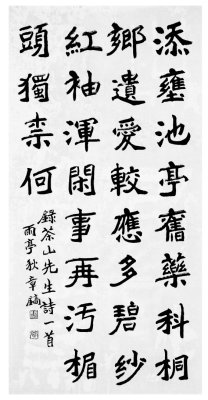 添壅池亭舊藥科桐
鄉遺愛較應多碧紗
紅袖渾閑事再汚楣
頭獨柰何
錄茶山先生詩一首
雨亭狄章